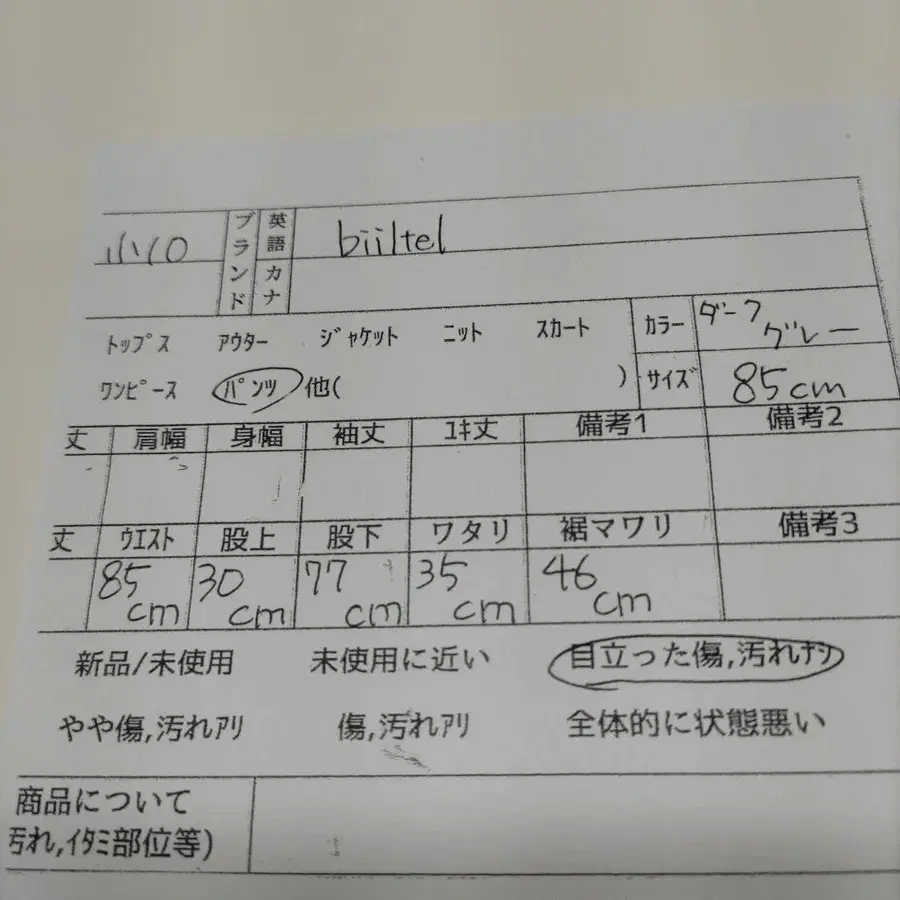 ブランド 英語 biiltel
カナ
トップス アウター ジャケット ニット スカート カラー ダーク グレー
ワンピース パンツ 他( ) サイズ 85cm
丈 肩幅 身幅 袖丈 ユキ丈 備考1 備考2
丈 ウエスト 股上 股下 ワタリ 裾マワリ 備考3
85cm 30cm 77cm 35cm 46cm
新品/未使用 未使用に近い 目立った傷,汚れナシ
やや傷,汚れアリ 傷,汚れアリ 全体的に状態悪い
商品について
汚れ,イタミ部位等)